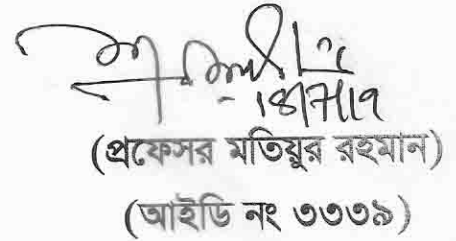 18/7/19
(প্রফেসর মতিয়ুর রহমান)
(আইডি নং ৩৩৩৯)